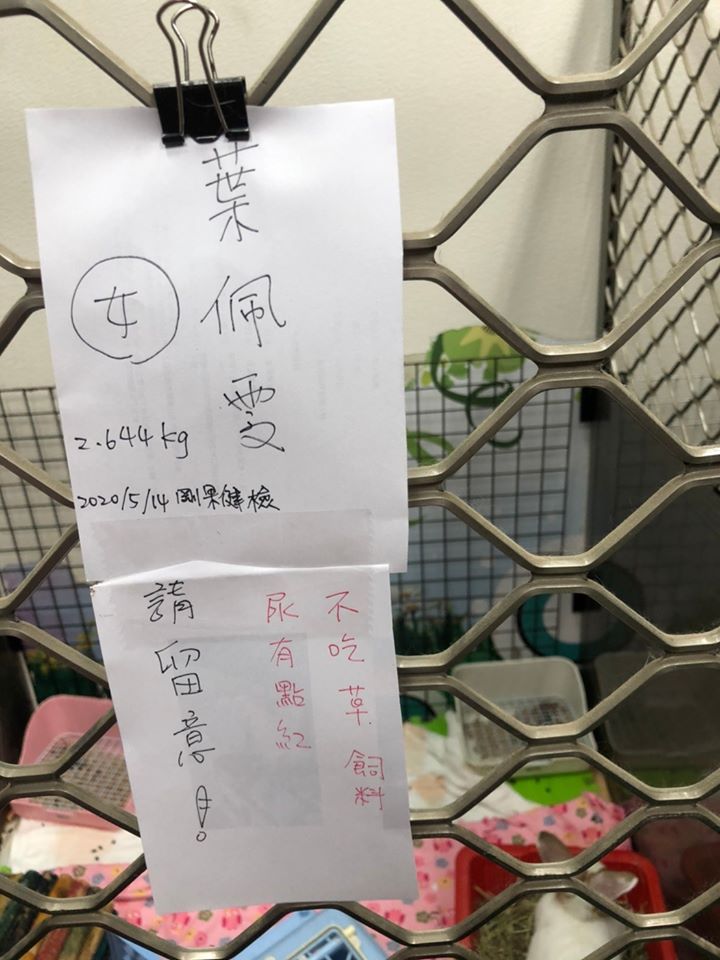 葉佩雯
女
2.644kg
2020/5/14 剛果健檢
不吃草飼料
尿有點紅
請留意!